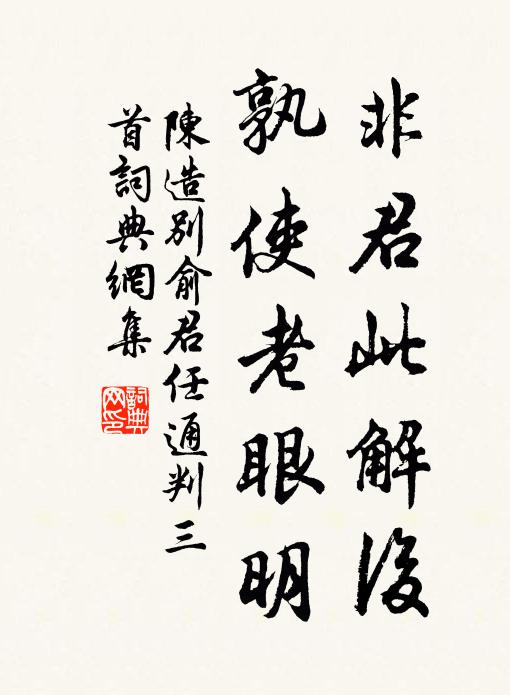 非君此解后
孰使老眼明
陳造别俞君任通判三
首詞典網集
詞典网印